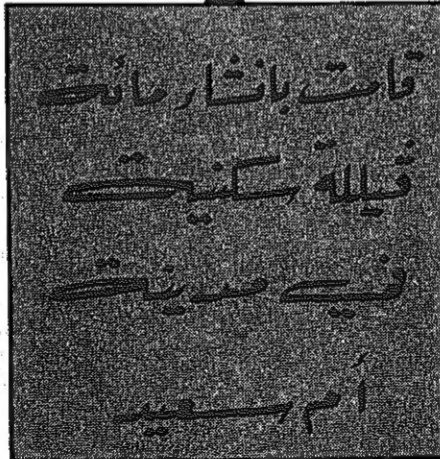 قامت بانشار مائت
فيللة سكنيت
في مدينت
أم سعيد